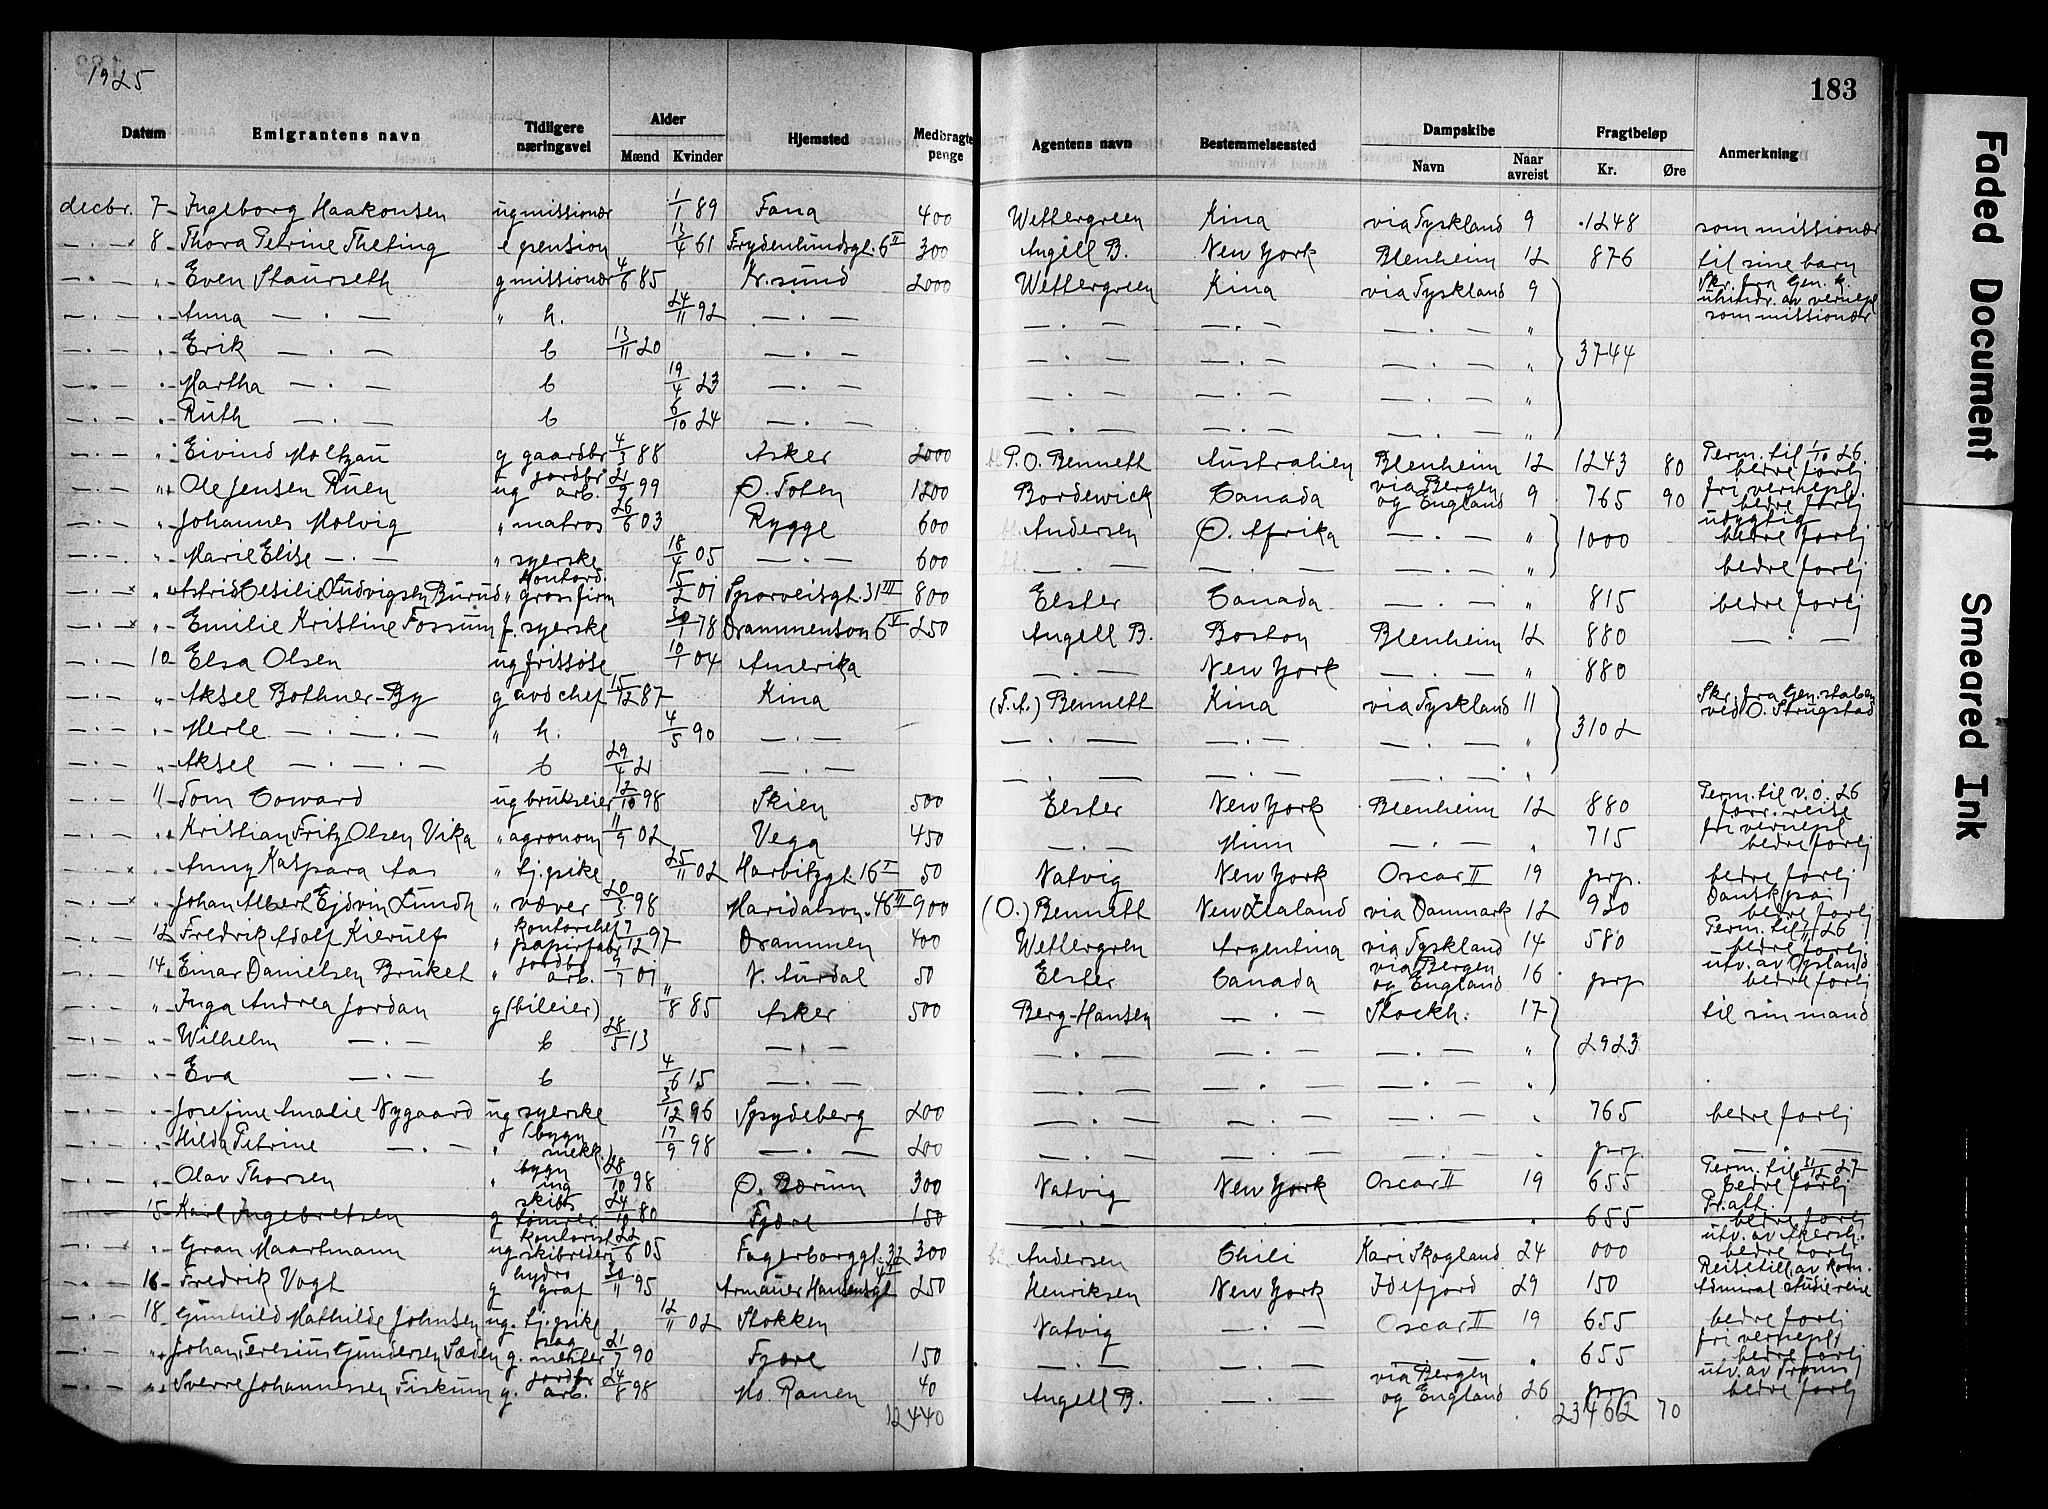 1925
183
Datum Emigrantens navn Tidligere næringsvei Alder Mænd Kvinder Hjemsted Medbragte penge Agentens navn Bestemmelsessted Dampskibe Navn Naar avreist Fragtbeløp Kr. Øre Anmerkning
decbr. 7 Ingeborg Haakonsen ug missionær 1/1 89 Fana 400 Wettergreen Kina via Tyskland 9 1248 som missionær
— 8 Thora Petrine Theting e pension 13/4 61 Frydenlundsgt. 6 II 300 Angell B. New York Blenheim 12 876 til sine barn
— " Even Staurseth g missionær 4/6 85 Kr.sund 2000 Wettergreen Kina via Tyskland 9 Skr. fra Gen. k. uhindr. av vernepl som missionær
— " Anna — . — " h. 24/11 92 — . — — . — — . — — . — "
— " Erik — . — b 13/11 20 — . — — . — — . — — . — " 3744
— " Martha — . — b 19/4 23 — . — — . — — . — — . — "
— " Ruth — . — b 6/10 24 — . — — . — — . — — . — "
— " Eivind Moltzau g gaardbr 4/3 88 Asker 2000 P.O. Bennett Australien Blenheim 12 1243 80 Perm. til 1/10 26. bedre forlj
— " Ole Jensen Ruen ug jordbr arb. 21/9 99 Ø. Toten 1200 Bordewick Canada via Bergen og England 9 765 90 fri vernepl. bedre forlj
— " Johannes Molvig " matros 26/6 03 Rygge 600 Andersen Ø. Afrika — . — " 1000 udygtig bedre forlj
— " Marie Elise — . — " syerske 18/4 05 — . — 600 — . — — . — — . — " bedre forlj
— " Astrid Cesilie Ludvigsen Burud " kontord. gross firm 15/2 01 Sporveisgt. 31 III 800 Elster Canada — . — " 815 bedre forlj
— " Emilie Kristine Fossum f. syerske 30/1 78 Drammensvn 6 V 250 Angell B. Boston Blenheim 12 880 — . —
— 10 Elsa Olsen ug frissøse 10/1 04 Amerika — . — New York — . — " 880
— " Aksel Bothner-By g avd chef 15/12 87 Kina (F.A.) Bennett Kina via Tyskland 11 Skr. fra Gen. staben ved O. Strugstad
— " Merle — . — " h. 4/5 90 — . — — . — — . — — . — " 3102
— " Aksel — . — b 29/4 21 — . — — . — — . — — . — "
11 Tom Coward ug brukseier 12/10 98 Skien 500 Elster New York Blenheim 12 880 Perm. til v. o. 26 forr. reise
— " Kristian Fritz Olsen Vika " agronom 11/9 02 Vega 450 — . — Minn — . — " 715 fri vernepl bedre forlj
— " Anny Kaspara Aas " tj. pike 25/11 02 Harbitzgt. 16 I 50 Natvig New York Oscar II 19 prp. bedre forlj
— " Johan Albert Ejdvin Lundh " væver 20/3 98 Maridalsvn. 46 II 900 (O.) Bennett New Zealand via Danmark 12 920 Dansk pas bedre forlj
— 12 Fredrik Adolf Kierulf " kontorchef papirfabr 7/12 97 Drammen 400 Wettergren Argentina via Tyskland 14 580 Perm. til 1/11 26 bedre forlj
— 14 Einar Danielsen Bruket " jordbr arb. 9/7 01 N. Aurdal 50 Elster Canada via Bergen og England 16 prp utv. av Opland bedre forlj
— " Inga Andrea Jordan g (bileier) 11/8 85 Asker 500 Berg-Hansen — . — Stockh. 17 til sin mand
— " Wilhelm — . — b 28/5 13 — . — — . — — . — — . — " 2923
— " Eva — . — b 4/6 15 — . — — . — — . — — . — "
— " Josefine Amalie Nygaard ug syerske 3/12 96 Spydeberg 200 — . — — . — — . — " 765 bedre forlj
— " Hilda Petrine — . — " 17/9 98 — . — 200 — . — — . — — . — " prp. — . —
— " Olav Thorsen " bygn ing 28/10 98 Ø. Bærum 300 Natvig New York Oscar II 19 655 Perm. til 31/12 27 bedre forlj
15 Karl Ingebretsen g skibs tømrer 24/10 80 Fjære 150 — . — — . — — . — " 655 Pr. att. bedre forlj
— " Gran Maartmann ug kontorist skibrederi 22/6 05 Fagerborggt. 32 300 Andersen Chili Kari Skogland 24 000 utv. av Akersh. bedre forlj
— 16 Fredrik Vogt g hydro graf 30/11 95 Armauer Hansensgt 250 Henriksen New York Idefjord 29 150 Reisetill. av Kom. Admiral studiereise
— 18 Gunhild Mathilde Johnsen ug. tj. pike 12/11 02 Stokken Natvig — . — Oscar II 19 655 bedre forlj
— " Johan Teresius Gundersen Sæden g. sag mester 21/7 90 Fjære 150 — . — — . — — . — " 655 fri vernepl bedre forlj
— " Sverre Johannessen Fiskum g. jordbr arb. 24/8 98 Mo. Ranen 40 Angell B. — . — via Bergen og England 26 prp utv. av Troms bedre forlj
12440 23462 70
Faded Document
Smeared Ink